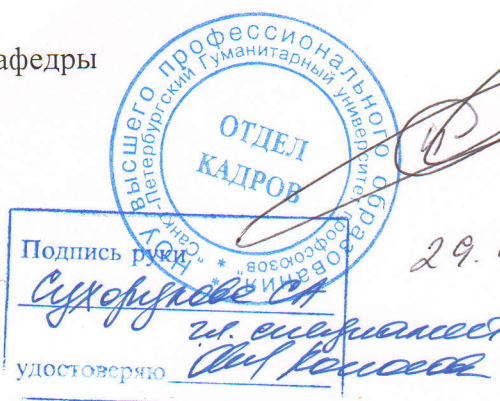 афедры
НОУ высшего профессионального образования
"Санкт-Петербургский Гуманитарный университет профсоюзов"
ОТДЕЛ
КАДРОВ
29.
Подпись руки
Сухорукова СА
гл. специалист
удостоверяю